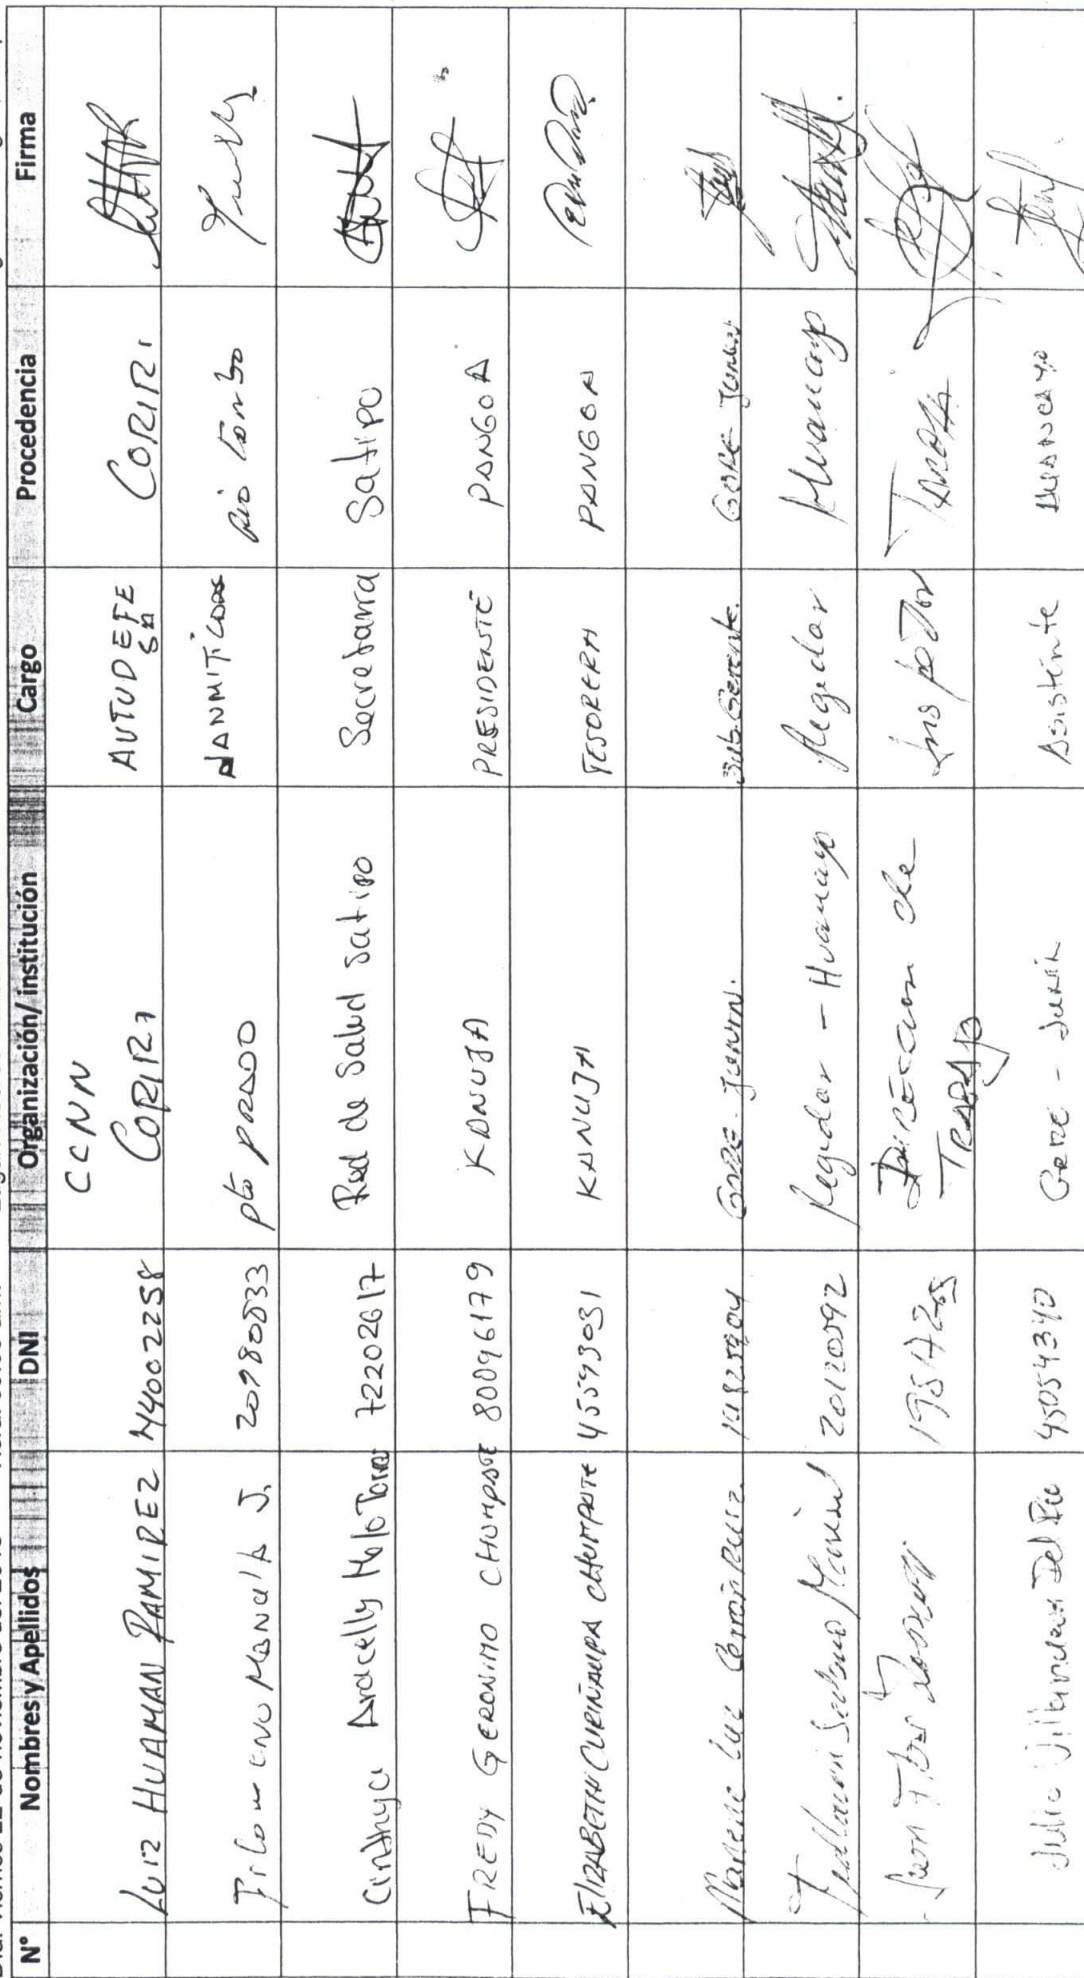 N° Nombres y Apellidos DNI Organización/ institución Cargo Procedencia Firma
Luiz HUAMAN RAMIREZ 44002258 CCNN CORIRI AUTUDEFE sa CORIRI
Filomeno Manula J. 20980833 pto PRADO DANMITICADOS Rio Tambo
Cinthya Aracelly Molo Torres 72202617 Red de Salud Satipo Secretaria Satipo
FREDY GERONIMO CHUMPATE 80096179 KANUJA PRESIDENTE PANGOA
ELIZABETH CURIÑAUPA CHUMPATE 45593031 KANUJA TESORERA PANGOA
Marlene Luz GORE - Junin. Sub Gerente. GORE Junin
20120592 Regidor - Huancayo Regidor Huancayo
Dirección de TRABAJO Inspector
Julio Villanueva Del Rio 45054340 Gore - Junín Asistente HUANCAYO